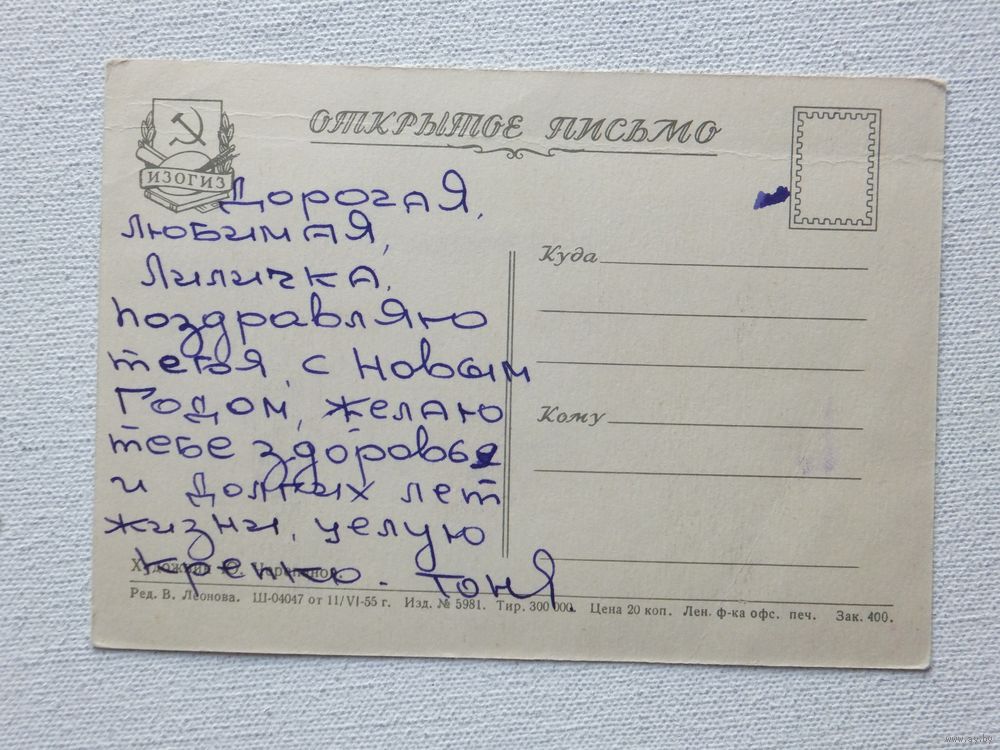 ОТКРЫТОЕ ПИСЬМО
ИЗОГИЗ
Дорогая,
любимая,
Лиличка,
поздравляю
тебя, с Новым
Годом, желаю
тебе здоровья
и долгих лет
жизни, целую
крепко. Тоня
Куда
Кому
Художник
Ред. В. Леонова. Ш-04047 от 11/VI-55 г. Изд. № 5981. Тир. 300 000. Цена 20 коп. Лен. ф-ка офс. печ. Зак. 400.
www.ay.by